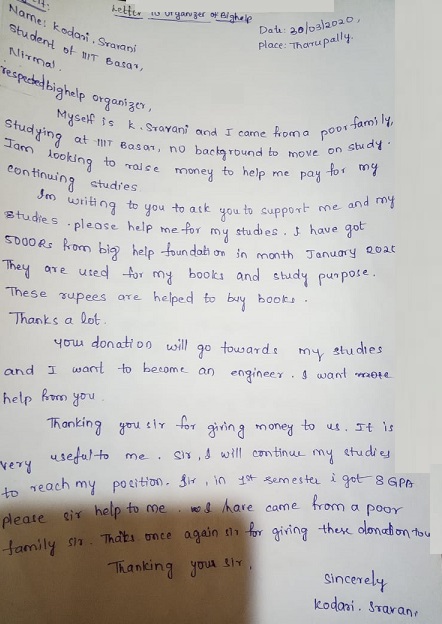 Letter to Organizer of Bighelp
Name: Kodari. Sravani
Date: 30/03/2020,
Student of IIIT Basar,
Place: Tharupally.
Nirmal.
respected bighelp organizer,
Myself is K. Sravani and I came from a poor family,
studying at IIIT Basar, no background to move on study.
Iam looking to raise money to help me pay for my
continuing studies
Im writing to you to ask you to support me and my
studies. please help me for my studies. I have got
5000Rs from big help foundation in month January
They are used for my books and study purpose.
These rupees are helped to buy books.
Thanks a lot.
your donation will go towards my studies
and I want to become an engineer. I want more
help from you.
Thanking you sir for giving money to us. It is
very useful to me. sir, I will continue my studies
to reach my position. Sir, in 1st semester i got 8 GPA
please sir help to me. I have came from a poor
family sir. Thaks once again sir for giving these donation to
Thanking your sir,
Sincerely
Kodari. Sravani